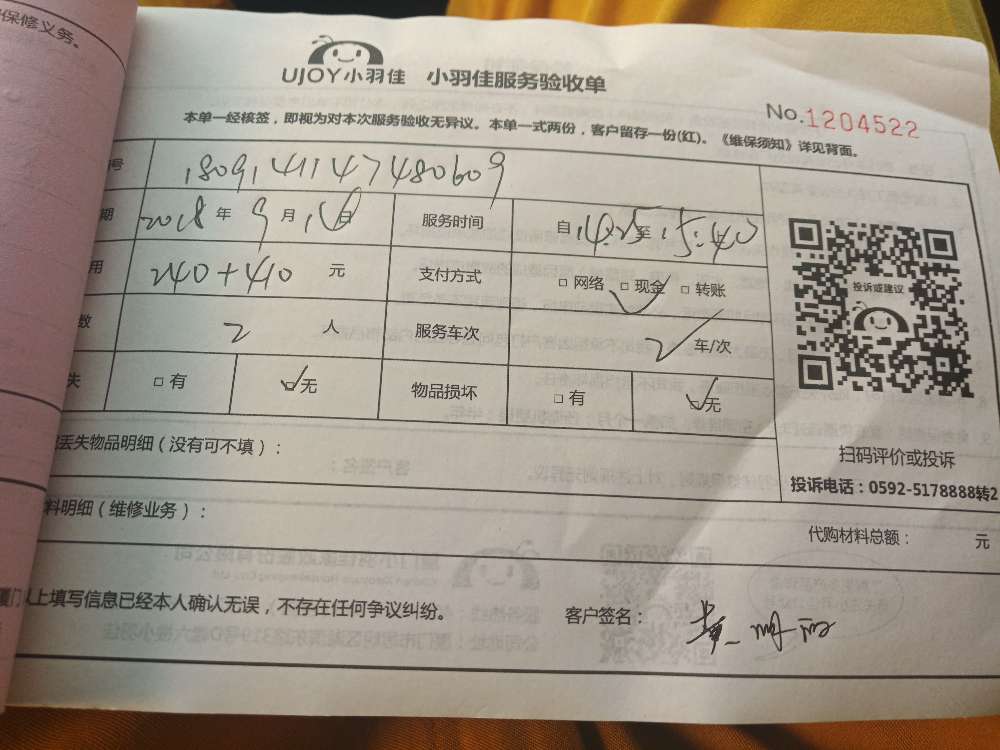 保修义务。
UJOY小羽佳 小羽佳服务验收单
No.1204522
本单一经核签，即视为对本次服务验收无异议。本单一式两份，客户留存一份(红)。《维保须知》详见背面。
号 1809141147480609
期 2018年9月16日 服务时间 自14:25至15:40止
用 240+40元 支付方式 □网络 □✓现金 □转账
数 2人 服务车次 2车/次
失 □有 □✓无 物品损坏 □有 □✓无
投诉或建议
扫码评价或投诉
投诉电话：0592-5178888转2
丢失物品明细（没有可不填）：
料明细（维修业务）：
代购材料总额： 元
以上填写信息已经本人确认无误，不存在任何争议纠纷。
客户签名：